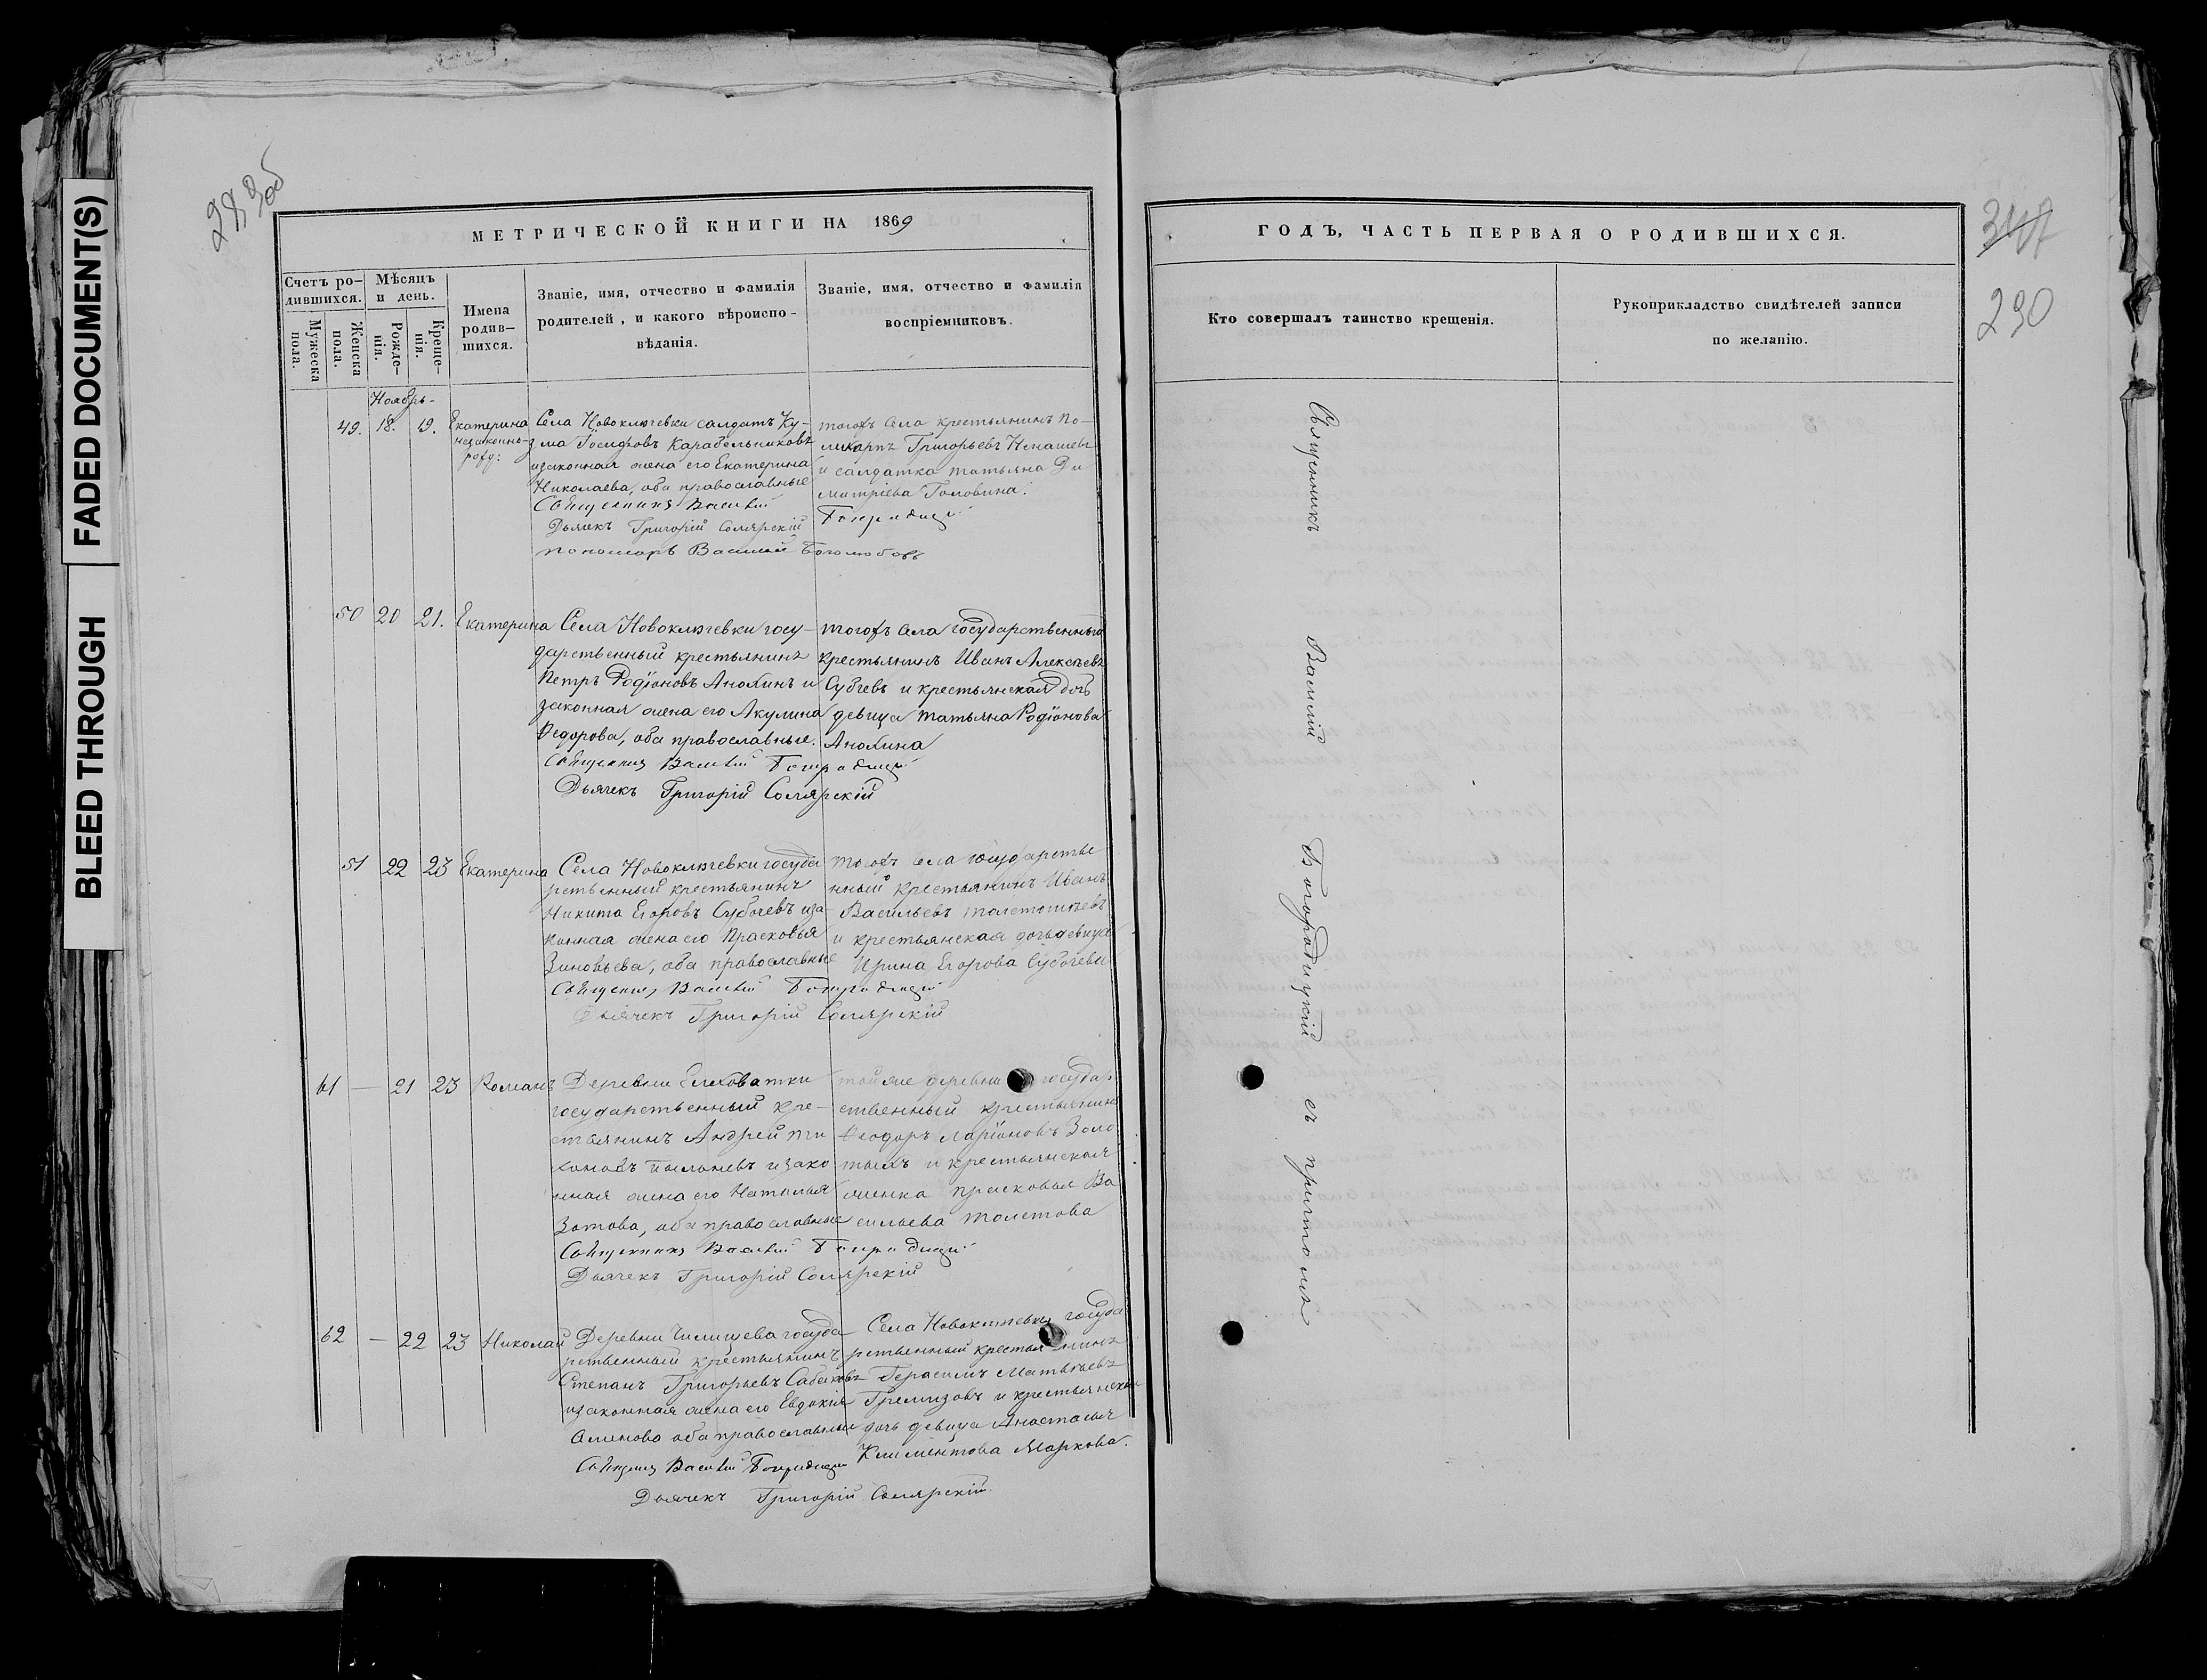 FADED DOCUMENT(S)
BLEED THROUGH
МЕТРИЧЕСКОЙ КНИГИ НА 1869
Счетъ ро-
дившихся.
Мужеска
пола.
Женска
пола.
Мѣсяцъ
и день.
Рожде-
нія.
Креще-
нія.
Имена
родив-
шихся.
Званіе, имя, отчество и фамилія
родителей, и какого вѣроиспо-
вѣданія.
Званіе, имя, отчество и фамилія
воспріемниковъ.
Ноябрь-
49. 18. 19. Екатерина
незаконно-
рожд:
Села Новоключевки салдатъ Ку-
зма Карабельниковъ
изаконная жена его Екатерина
Николаева, оба православные
Священникъ Василій
Дьячекъ Григорій Солярскій
пономарь Василий Боголюбовъ
тогожъ села крестьянинъ По-
ликарпъ Григорьевъ Ненашевъ
и салдатка татьяна Ди
митріева Головина.
Богородицкій
50 20 21. Екатерина
Села Новоключевки госу-
дарственный крестьянинъ
Петръ Родіоновъ Анохинъ и
законная жена его Акулина
Федорова, оба православные.
Священникъ Василій Богородицкій
Дьячекъ Григорій Солярскій
тогожъ села государственный
крестьянинъ Иванъ Алексѣевъ
Субчевъ и крестьянская дочь
девица татьяна Родіонова
Анохина
51 22 23 Екатерина
Села Новоключевки государ
рственный крестьянинъ
Никита Егоровъ Субочевъ иза-
конная жена его Прасковья
Зиновьева, оба православные
Священникъ Василій Богородицкій
Дьячекъ Григорій Солярскій
тогожъ села государстве
нный крестьянинъ Иванъ
Васильевъ
и крестьянская дочь девица
Ирина Егорова Субочева
61 — 21 23 Романъ
Деревни Елховатки
государственный кре-
стьянинъ Андрей ти
хоновъ изако
нная жена его Наталья
Зотова, оба православные
Священникъ Василій Богородицкій
Дьячекъ Григорій Солярскій
тойже деревни государ
ственный крестьянинъ
Феодоръ Ларіоновъ Золо
тыхъ и крестьянская
женка прасковья Ва
сильева толстова
62 — 22 23 Николай
Деревни государ
рственный крестьянинъ
Степанъ Григорьевъ
изаконная жена его Евдокія
оба православные
Священникъ Василій Богородицкій
Дьячекъ Григорій Солярскій
Села Новоключевки госуда
рственный крестьянинъ
Герасимъ Матвѣевъ
и крестьянская
дочь девица Анастасия
Климентова Маркова.
ГОДЪ, ЧАСТЬ ПЕРВАЯ О РОДИВШИХСЯ.
230
Кто совершалъ таинство крещенія.
Рукоприкладство свидѣтелей записи
по желанію.
Священникъ Василій Богородицкій съ причтомъ